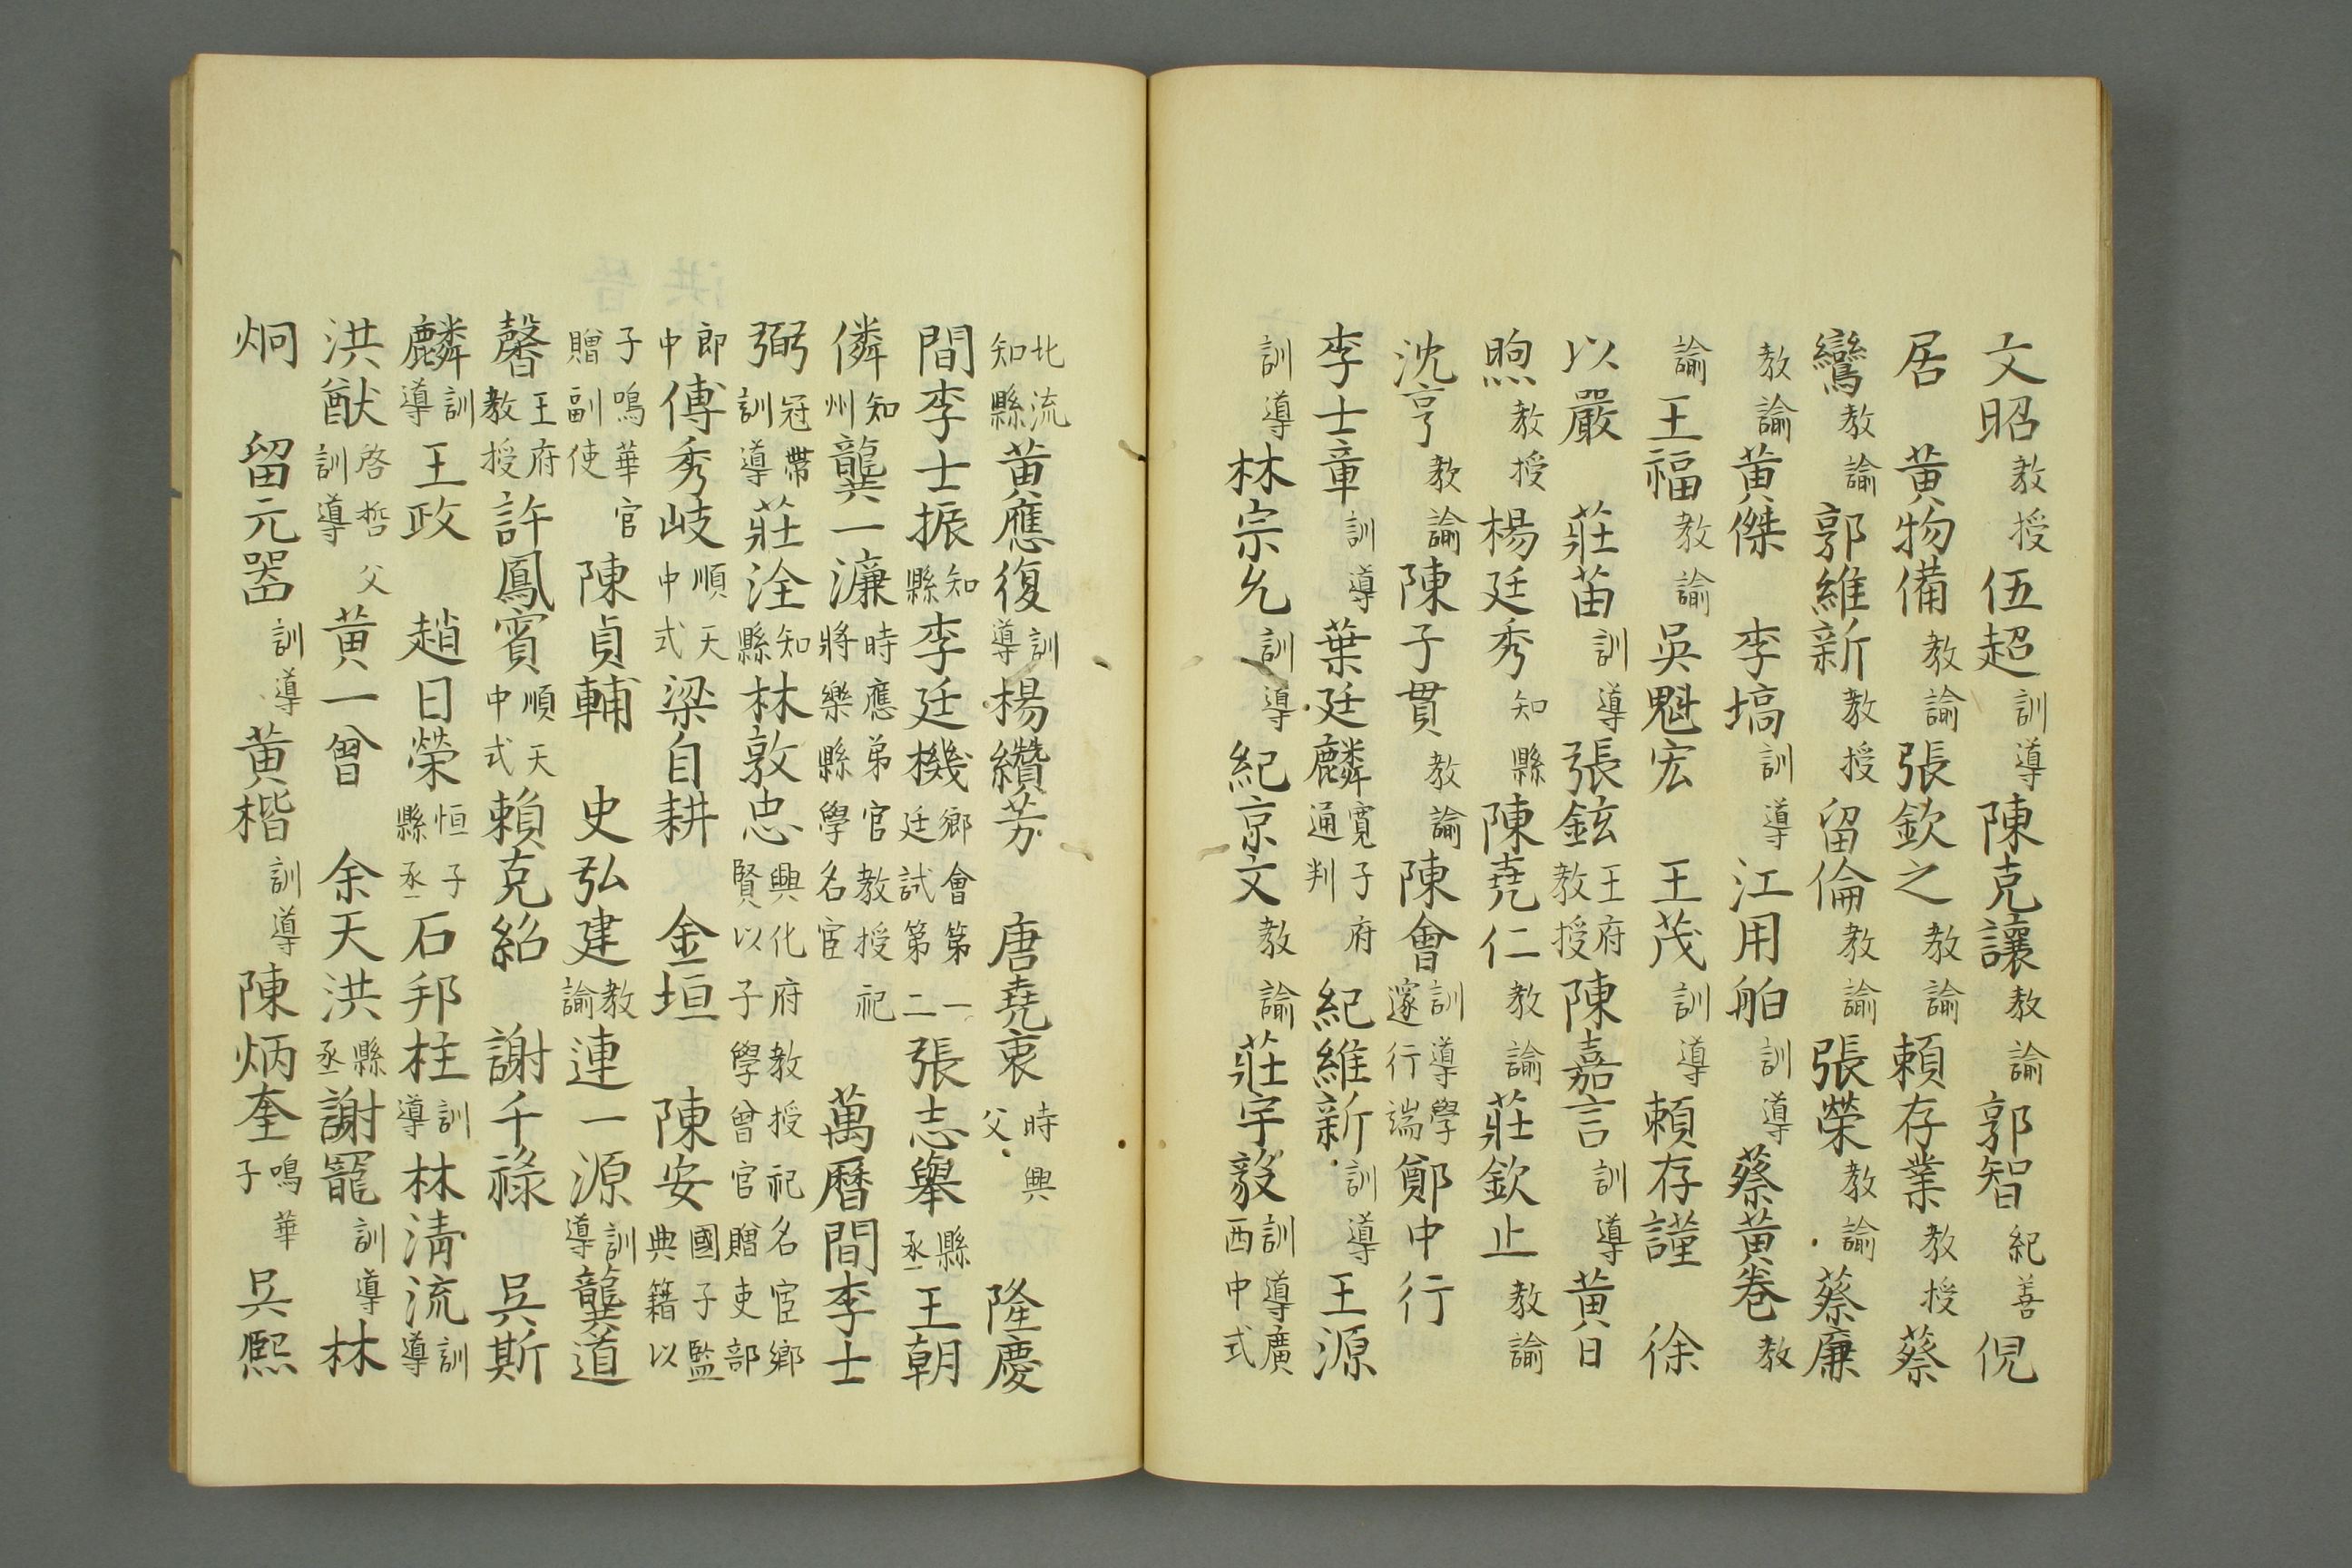 文昭教授伍超訓導陳克讓教諭郭智紀善倪
居 黃物備教諭張欽之教諭賴存業教授蔡
鸞教諭郭維新教授留倫教諭張榮教諭蔡廉
教諭黃傑 李塙訓導江用舶訓導蔡黃卷教
諭王福教諭吳魁宏 王茂訓導賴存謹 徐
以嚴 莊苖訓導張鉉王府教授陳嘉言訓導黃日
煦教授楊廷秀知縣陳堯仁教諭莊欽止教諭
沈亨教諭陳子貫教諭陳會訓導學邃行端鄭中行
李士章訓導葉廷麟寬子府通判紀維新訓導王源
訓導林宗允訓導紀京文教諭莊宇毅訓導廣西中式
北流知縣黃應復訓導楊纘芳 唐堯衷時興父 隆慶
間李士振知縣李廷機鄉會第一廷試第二張志舉縣丞王朝
僯知州龔一濂時應弟官教授祀將樂縣學名宦 萬曆間李士
弼冠帶訓導莊淦知縣林敦忠興化府教授祀名宦鄉賢以子學曾官贈吏部
郎中傅秀岐順天中式梁自耕 金垣 陳安國子監典籍以
子鳴華官贈副使陳貞輔 史弘建教諭連一源訓導龔道
馨王府教授許鳳賓順天中式賴克紹 謝千祿 吳斯
麟訓導王政 趙日榮恒子縣丞石邦柱訓導林淸流訓導
洪猷啓哲父訓導黃一曾 余天洪縣丞謝寵訓導林
炯 留元噐訓導黃楷訓導陳炳奎鳴華子吳熙